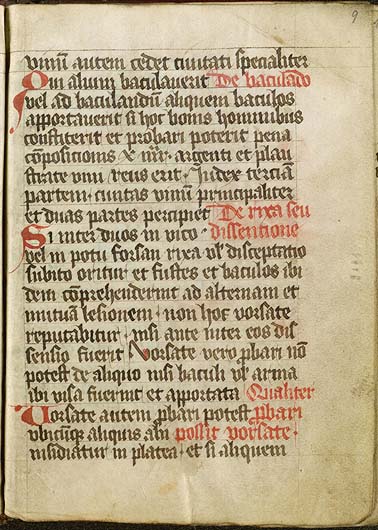 9
vinum autem cedet ciuitati specialiter
Qui alium baculauerit De baculado
vel ad baculandum aliquem baculos
apportauerit si hoc bonis hominibus
constiterit et probari poterit pena
compositionis x mr̄. argenti et plau
strate vini reus erit. Judex terciam
partem. ciuitas vinum principaliter
et duas partes percipiet De rixa seu
Si inter duos in vico. dissentione
vel in potu forsan rixa vl' disceptatio
subito oritur et fustes et baculos ibi
dem comprehenderint ad alternam et
mutuam lesionem. non hoc vorsate
reputabitur. nisi ante inter eos dis
sensio fuerit Vorsate vero pbari nō
potest de aliquo nisi baculi vl' arma
ibi visa fuerint et apportata Qualiter
Vorsate autem pbari potest pbari
vbicūque aliquis aln̄ possit vorsate.
insidiatur in platea. et si aliquem